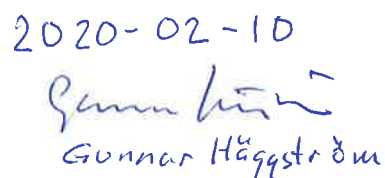 2020-02-10
Gunnar Häggström